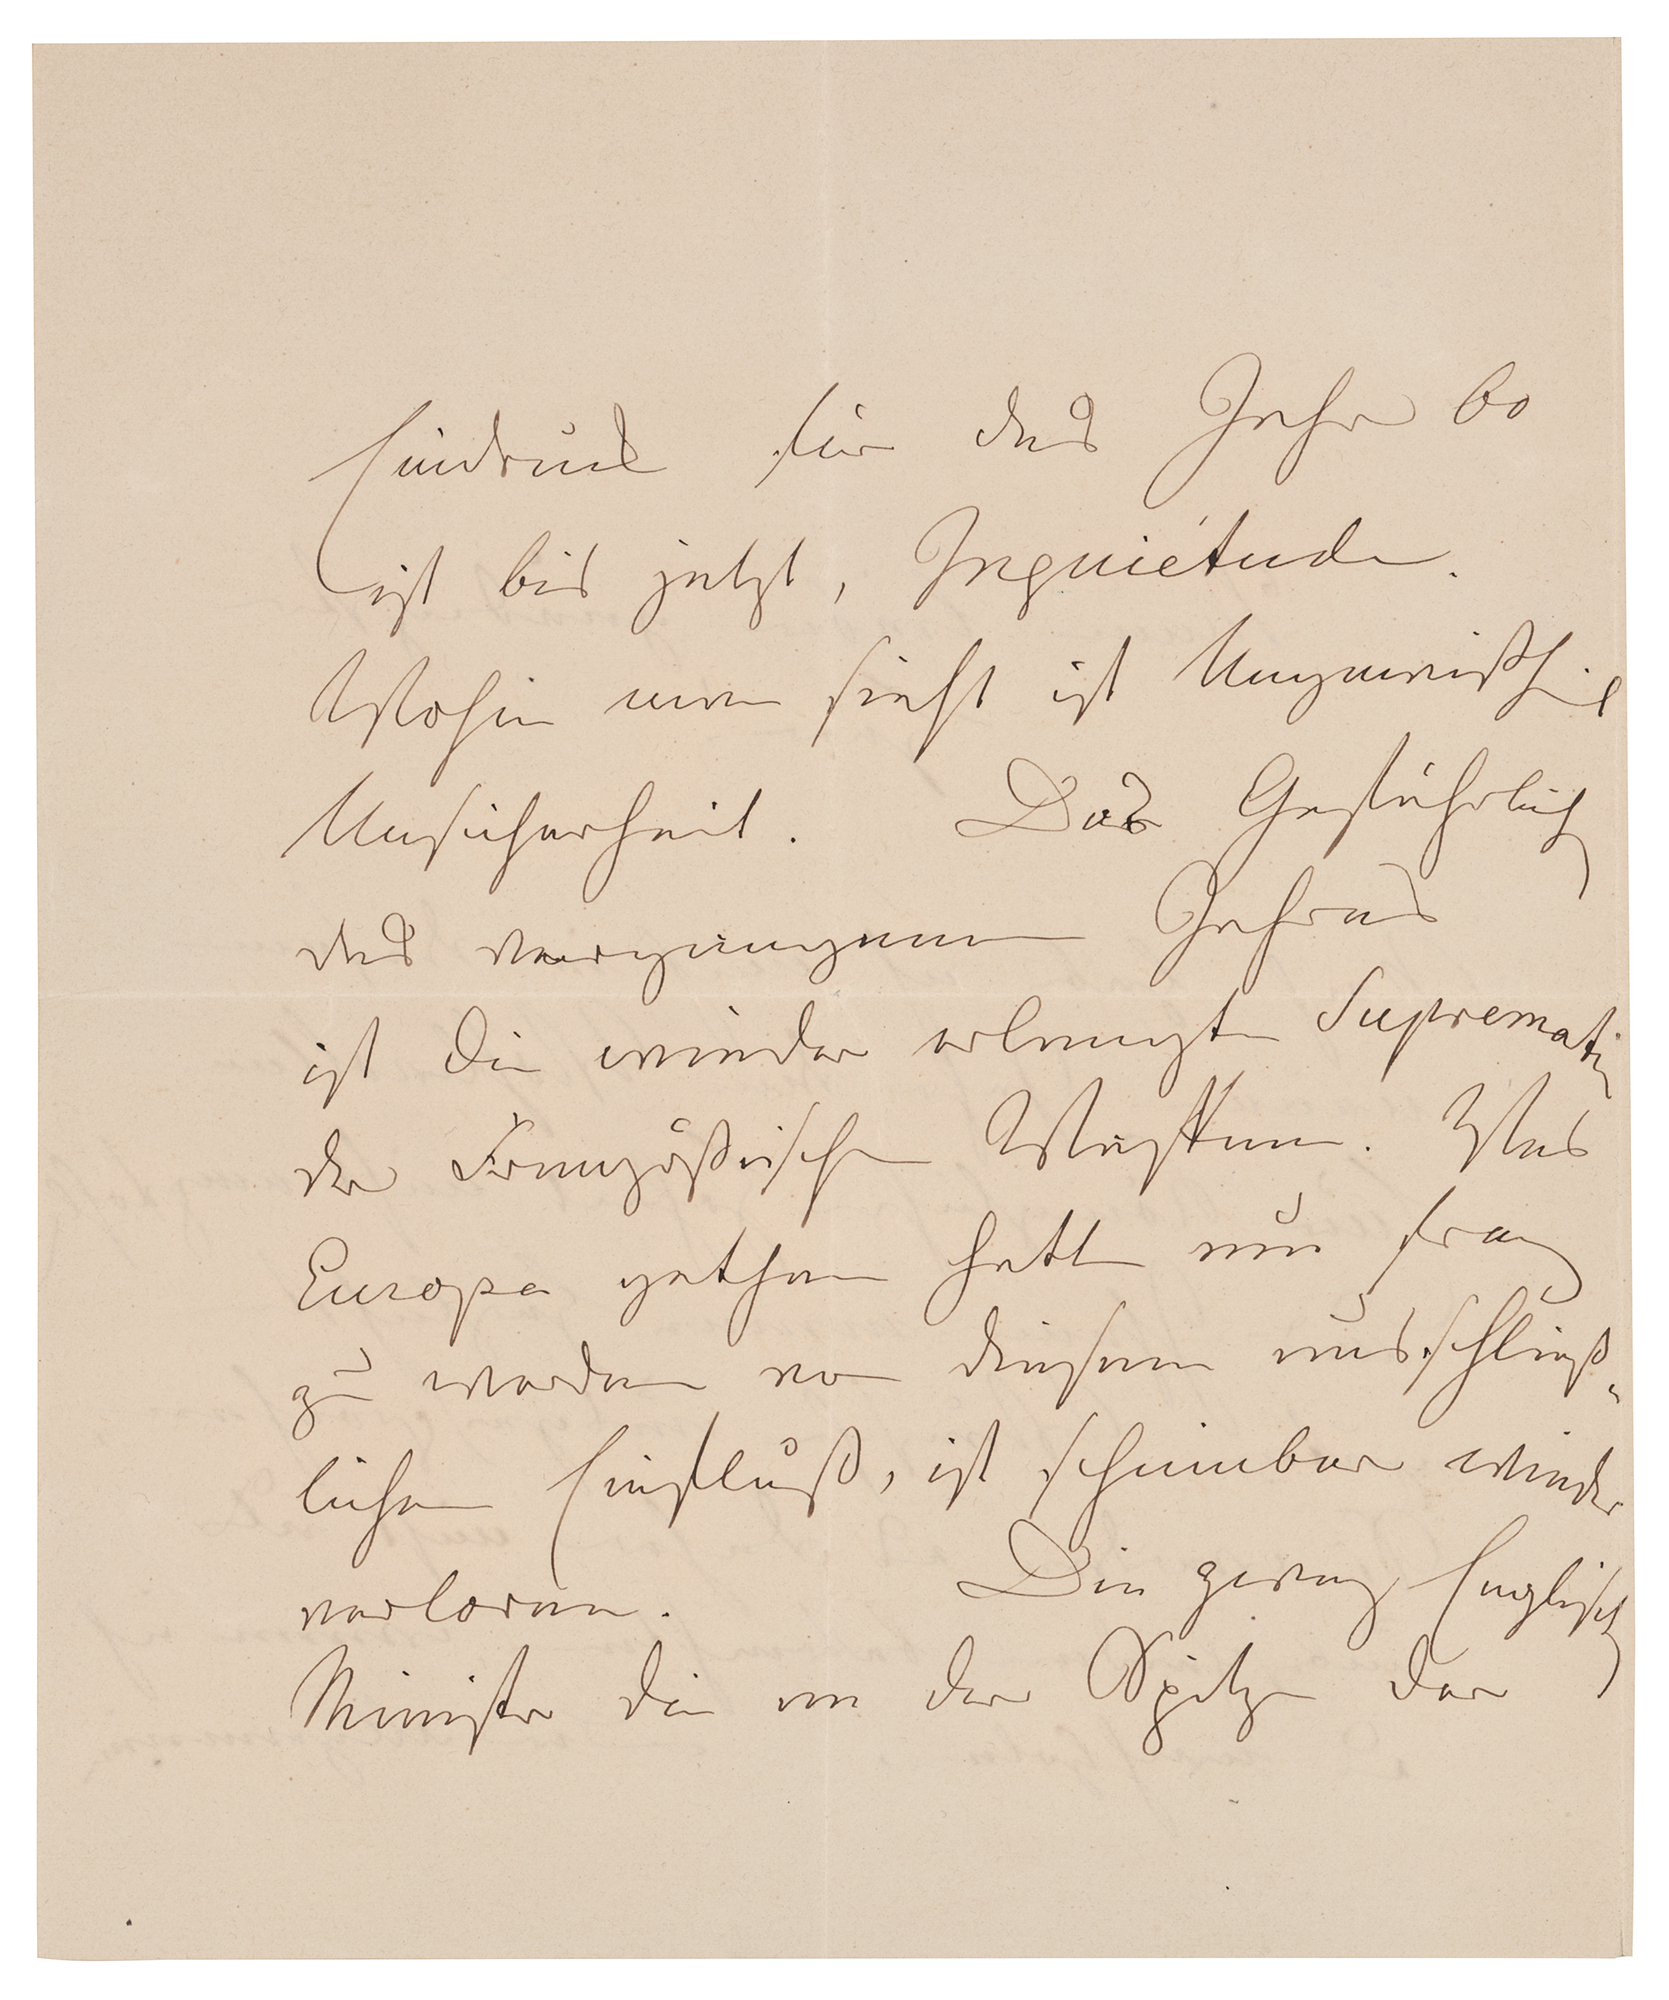 Eindruck für das Jahr 60
ist bis jetzt, Inquiétude.
Wohin man sieht ist Ungewißheit
Unsicherheit. Das Gefährlich
des vergangenen Jahres
ist die wieder erlangte Suprematie
der Französischen Waffen. Was
Europa gethan hatte um frei
zu werden von diesem ausschließ-
lichen Einfluß, ist scheinbar wieder
verloren. Die zwey Englischen
Minister die an der Spitze der